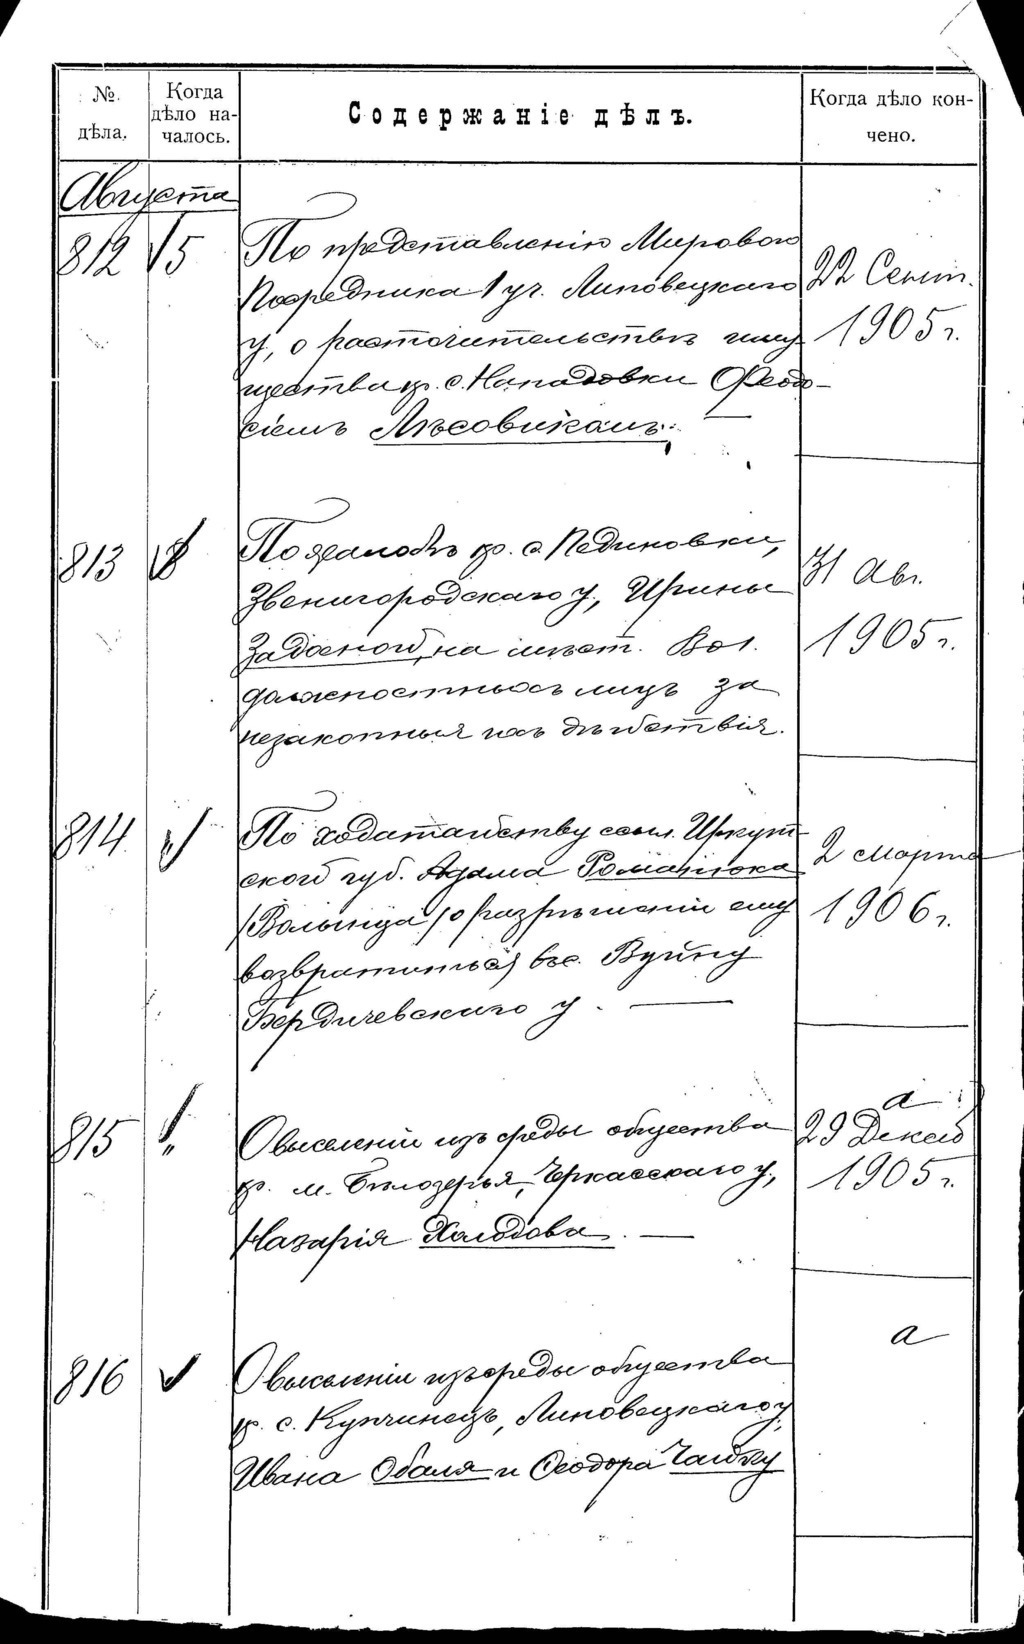 № дѣла.
Когда дѣло на-
чалось.
Содержаніе дѣлъ.
Когда дѣло кон-
чено.
Августа
812 5 По представленію Мирового 22 Сент.
Посредника 1 уч. Липовецкаго 1905 г.
у, о расточительствѣ иму
щества кр. с. Нападовки Ѳеодо-
сіемъ Лѣсовикомъ.
813 8 По жалобѣ кр. с. Пединовки, 31 Авг.
Звенигородскаго у, Ирины 1905 г.
Задоеной, на мѣст. Вол.
должностныхъ лицъ за
незаконныя ихъ дѣйствія.
814 " По ходатайству ссыл. Иркут 2 Марта
ской губ. Адама Романюка 1906 г.
/Волынца/ о разрѣшеніи ему
возвратиться въ с. Вуйну
Бердичевскаго у. —
а
815 " О выселеніи изъ среды общества 29 Декаб
кр. м. Бѣлозерья, Черкасскаго у, 1905 г.
Назарія Холодова. —
а
816 О выселеніи изъ среды общества
кр. с. Купчинецъ, Липовецкаго у,
Ивана Обаля и Ѳеодора Чайку